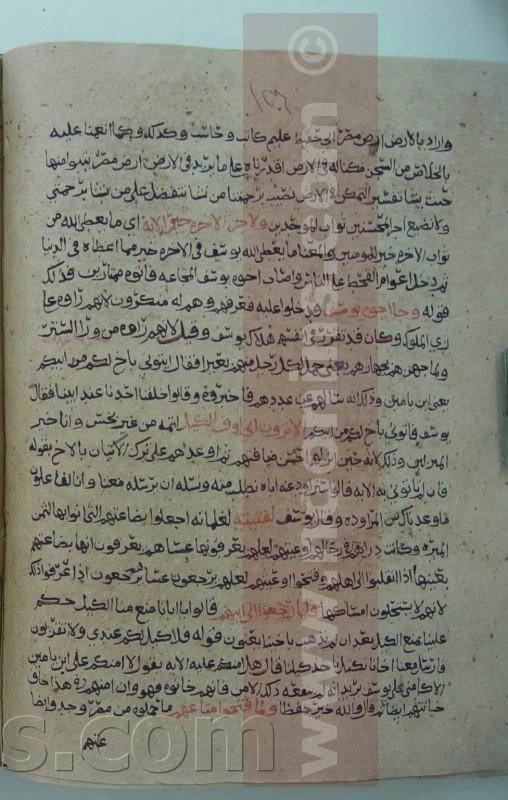 واراد بالارض ارض مصر انى حفيظ عليم كاتب وحاسب وكذلك وكما انعمنا عليه
بالخلاص من السجن مكنا له فى الارض اقدرناه على ما يريد فى الارض ارض مصر يتبوا منها
حيث يشا تفسير التمكن فى الارض نصيب برحمتنا من نشا نتفضل على من نشا برحمتى
ولا نضيع اجر المحسنين ثواب الموحدين ولاجر الاخره خير الايه اى ما يعطى الله من
ثواب الاخره خير للمومنين والمعنا ما يعطى الله يوسف فى الاخره خير مما اعطاه فى الدنيا
ثم دخل اعوام القحط على الناس واصاب اخوة يوسف المجاعه فاتوه ممتارين فذلك
قوله وجا اخوة يوسف فدخلوا عليه فعرفهم وهم له منكرون لانهم راوه على
زى الملوك وكان قد تقرر فى انفسهم هلاك يوسف وقيل لانهم راوه من ورا الستر
ولما جهزهم بجهازهم يعنى حمل لكل رجل منهم بعيرا فقال ايتونى باخ لكم من ابيكم
يعنى ابن يامين وذلك انه سالهم عن عددهم فاخبروه وقالوا خلفنا احدنا عند ابينا فقال
يوسف فاتونى باخ لكم من ابيكم الا ترون انى اوفى الكيل اتمه من غير بخس وانا خير
المنزلين وذلك لانه حين انزلهم احسن ضيافتهم ثم اوعدهم على ترك الاتيان بالاخ بقوله
فان لم تاتونى به الايه قالوا سنراود عنه اباه نطلب منه ونسله ان يرسله معنا وانا لفاعلون
ما وعدناك من المراوده وقال يوسف لفتيته لغلمانه اجعلوا بضاعتهم التى اتوا بها لثمن
الميره وكانت دراهم فى رحالهم اوعيتهم لعلهم يعرفونها عساهم يعرفون انها بضاعتهم
بعينها اذا انقلبوا الى اهلهم وفتحوا اوعيتهم لعلهم يرجعون عسا يرجعون اذا عرفوا ذلك
لانهم لا يستحلون امساكها فلما رجعوا الى ابيهم قالوا يا ابانا منع منا الكيل حكم
علينا بمنع الكيل بعد ان لم نذهب باخينا يعنون قوله فلا كيل لكم عندى ولا تقربون
وارسل معنا اخانا نكتل ناخذ كيلنا قال هل امنكم عليه الايه يقول لا امنكم على ابن يامين
الا كامنى على يوسف يريد انه لم ينفعه ذلك الامن فانهم خانوه فهو وان امنهم فى هذا خاف
خيانتهم ايضا ثم قال والله خير حفظا ولما فتحوا متاعهم ما حملوه من مصر وجدوا بضا
عتهم
www.noorlib.s.com ©
s.com